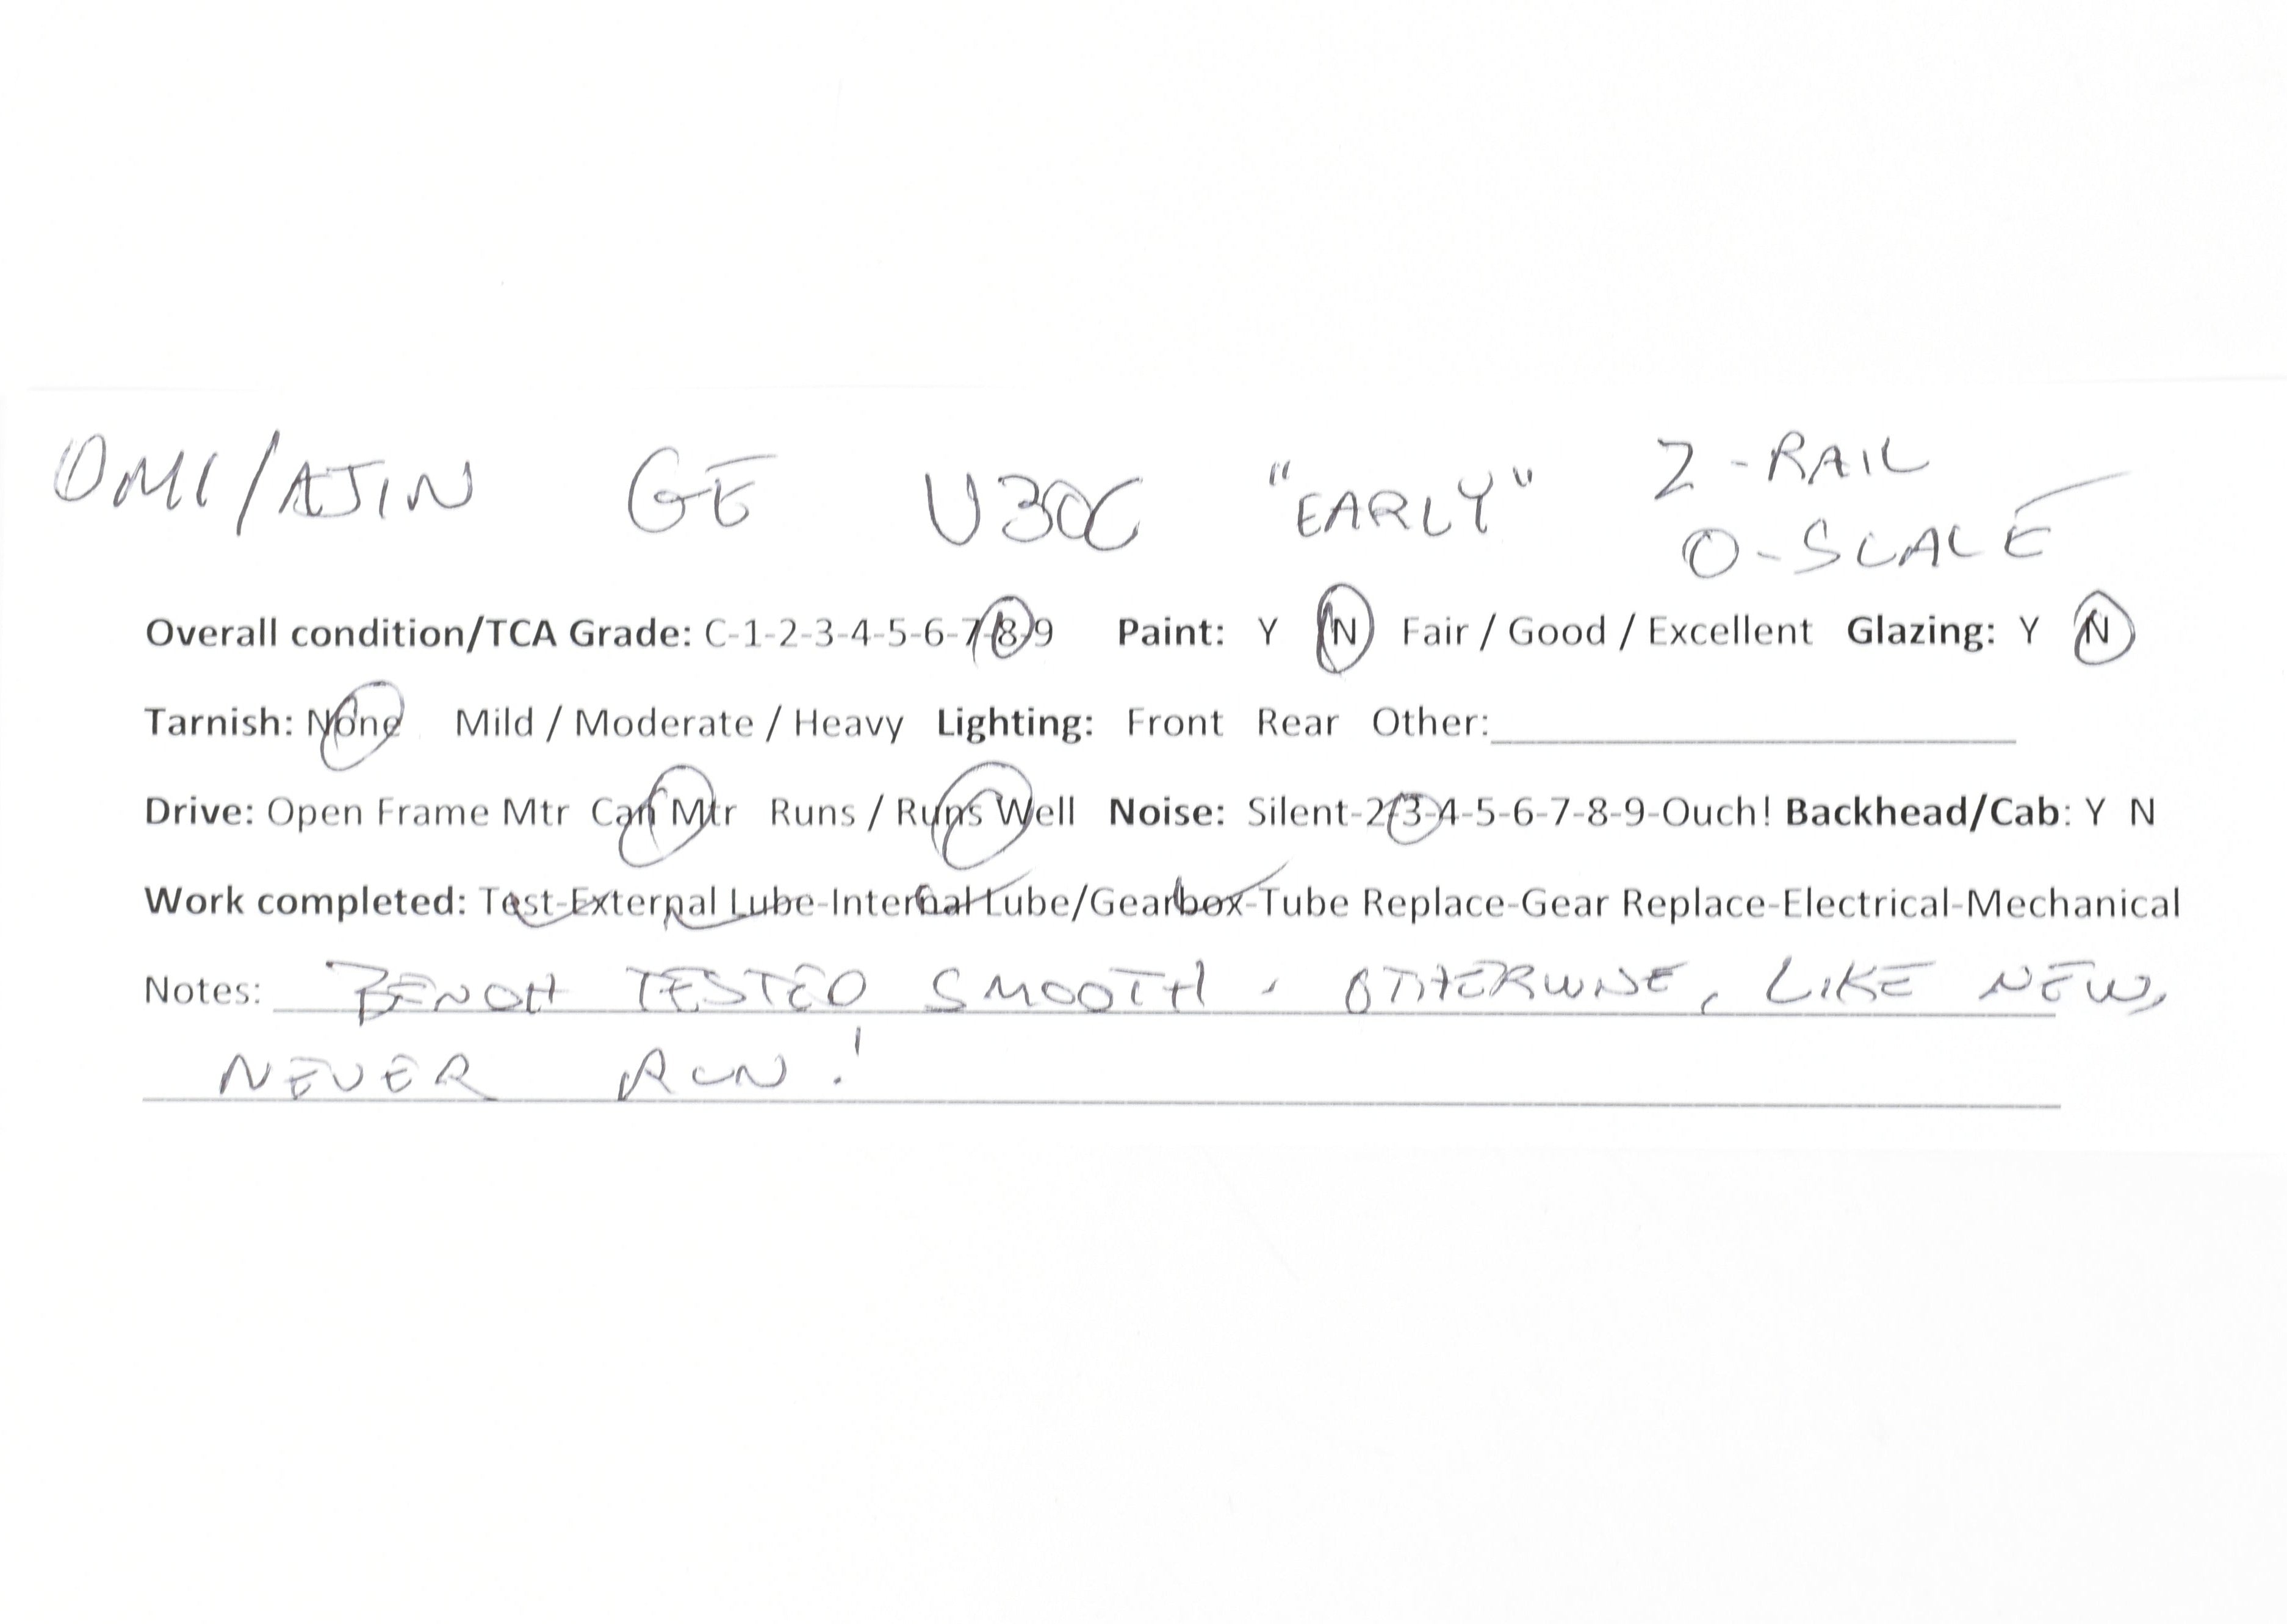 OMI/AJIN GE U30C "EARLY" 2-RAIL
O-SCALE
Overall condition/TCA Grade: C-1-2-3-4-5-6-7-8-9 Paint: Y N Fair / Good / Excellent Glazing: Y N
Tarnish: None Mild / Moderate / Heavy Lighting: Front Rear Other:
Drive: Open Frame Mtr Can Mtr Runs / Runs Well Noise: Silent-2-3-4-5-6-7-8-9-Ouch! Backhead/Cab: Y N
Work completed: Test-External Lube-Internal Lube/Gearbox-Tube Replace-Gear Replace-Electrical-Mechanical
Notes: BENCH TESTED SMOOTH. OTHERWISE, LIKE NEW,
NEVER RUN!